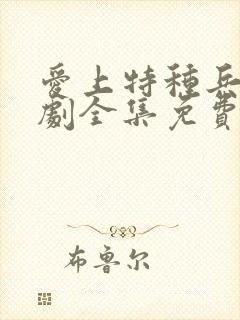 愛上特種兵
劇全集免費
布鲁尔